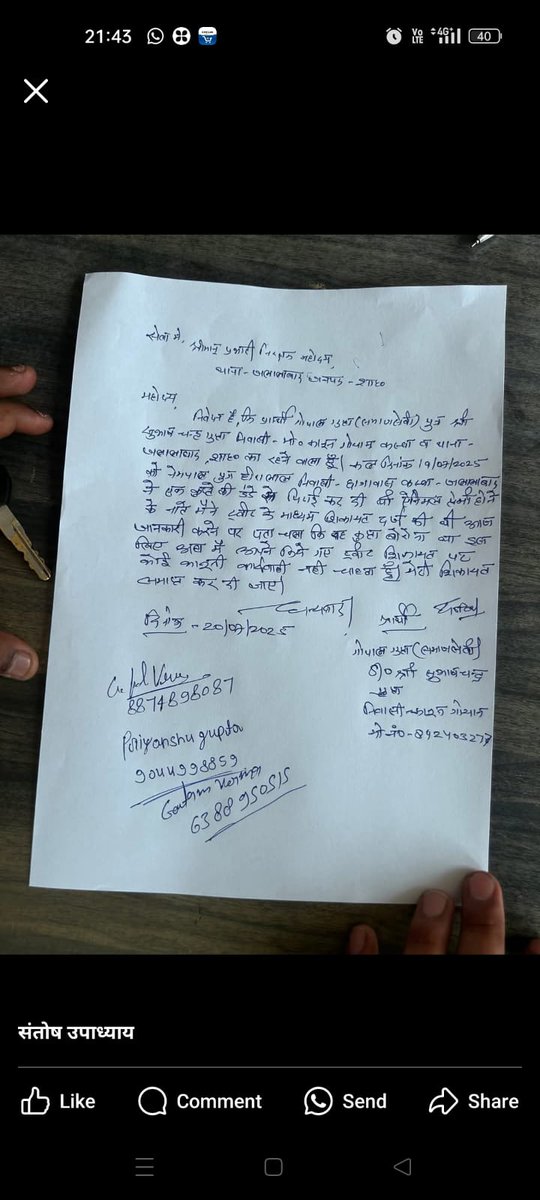 21:43
Vo LTE
4G+
40
सेवा में,
श्रीमान प्रभारी निरीक्षक महोदय,
थाना - जलालाबाद जनपद - शाह०
महोदय,
निवेदन है, कि प्रार्थी गोपाल गुप्ता (समाजसेवी) पुत्र श्री
सुभाष चन्द्र गुप्ता निवासी - मो० काइन गोयान कस्बा व थाना -
जलालाबाद, शाह० का रहने वाला हूँ। कल दिनांक 19/07/2025
को नेमपाल पुत्र हीरालाल निवासी - कस्बा - जलालाबाद
ने एक कुत्ते की डंडे से पिटाई कर दी थी ऐनिमल प्रेमी होने
के नाते मैंने ट्वीट के माध्यम शिकायत दर्ज की थी आज
जानकारी करने पर पता चला कि वह कुत्ता था इस
लिए में अपने किये गए ट्वीट शिकायत पर
कोई कानूनी कार्यवाही नहीं चाहता हूँ। मेरी शिकायत
समाप्त कर दी जाए।
धन्यवाद।
दिनाँक - 20/07/2025
प्रार्थी
गोपाल गुप्ता (समाजसेवी)
S/O श्री सुभाष चन्द्र
गुप्ता
निवासी - काइन गोयान
मो० नं० - 892403277
8874898087
Poriyanshu gupta
9044998859
Goutam Verma
6388950515
संतोष उपाध्याय
Like
Comment
Send
Share